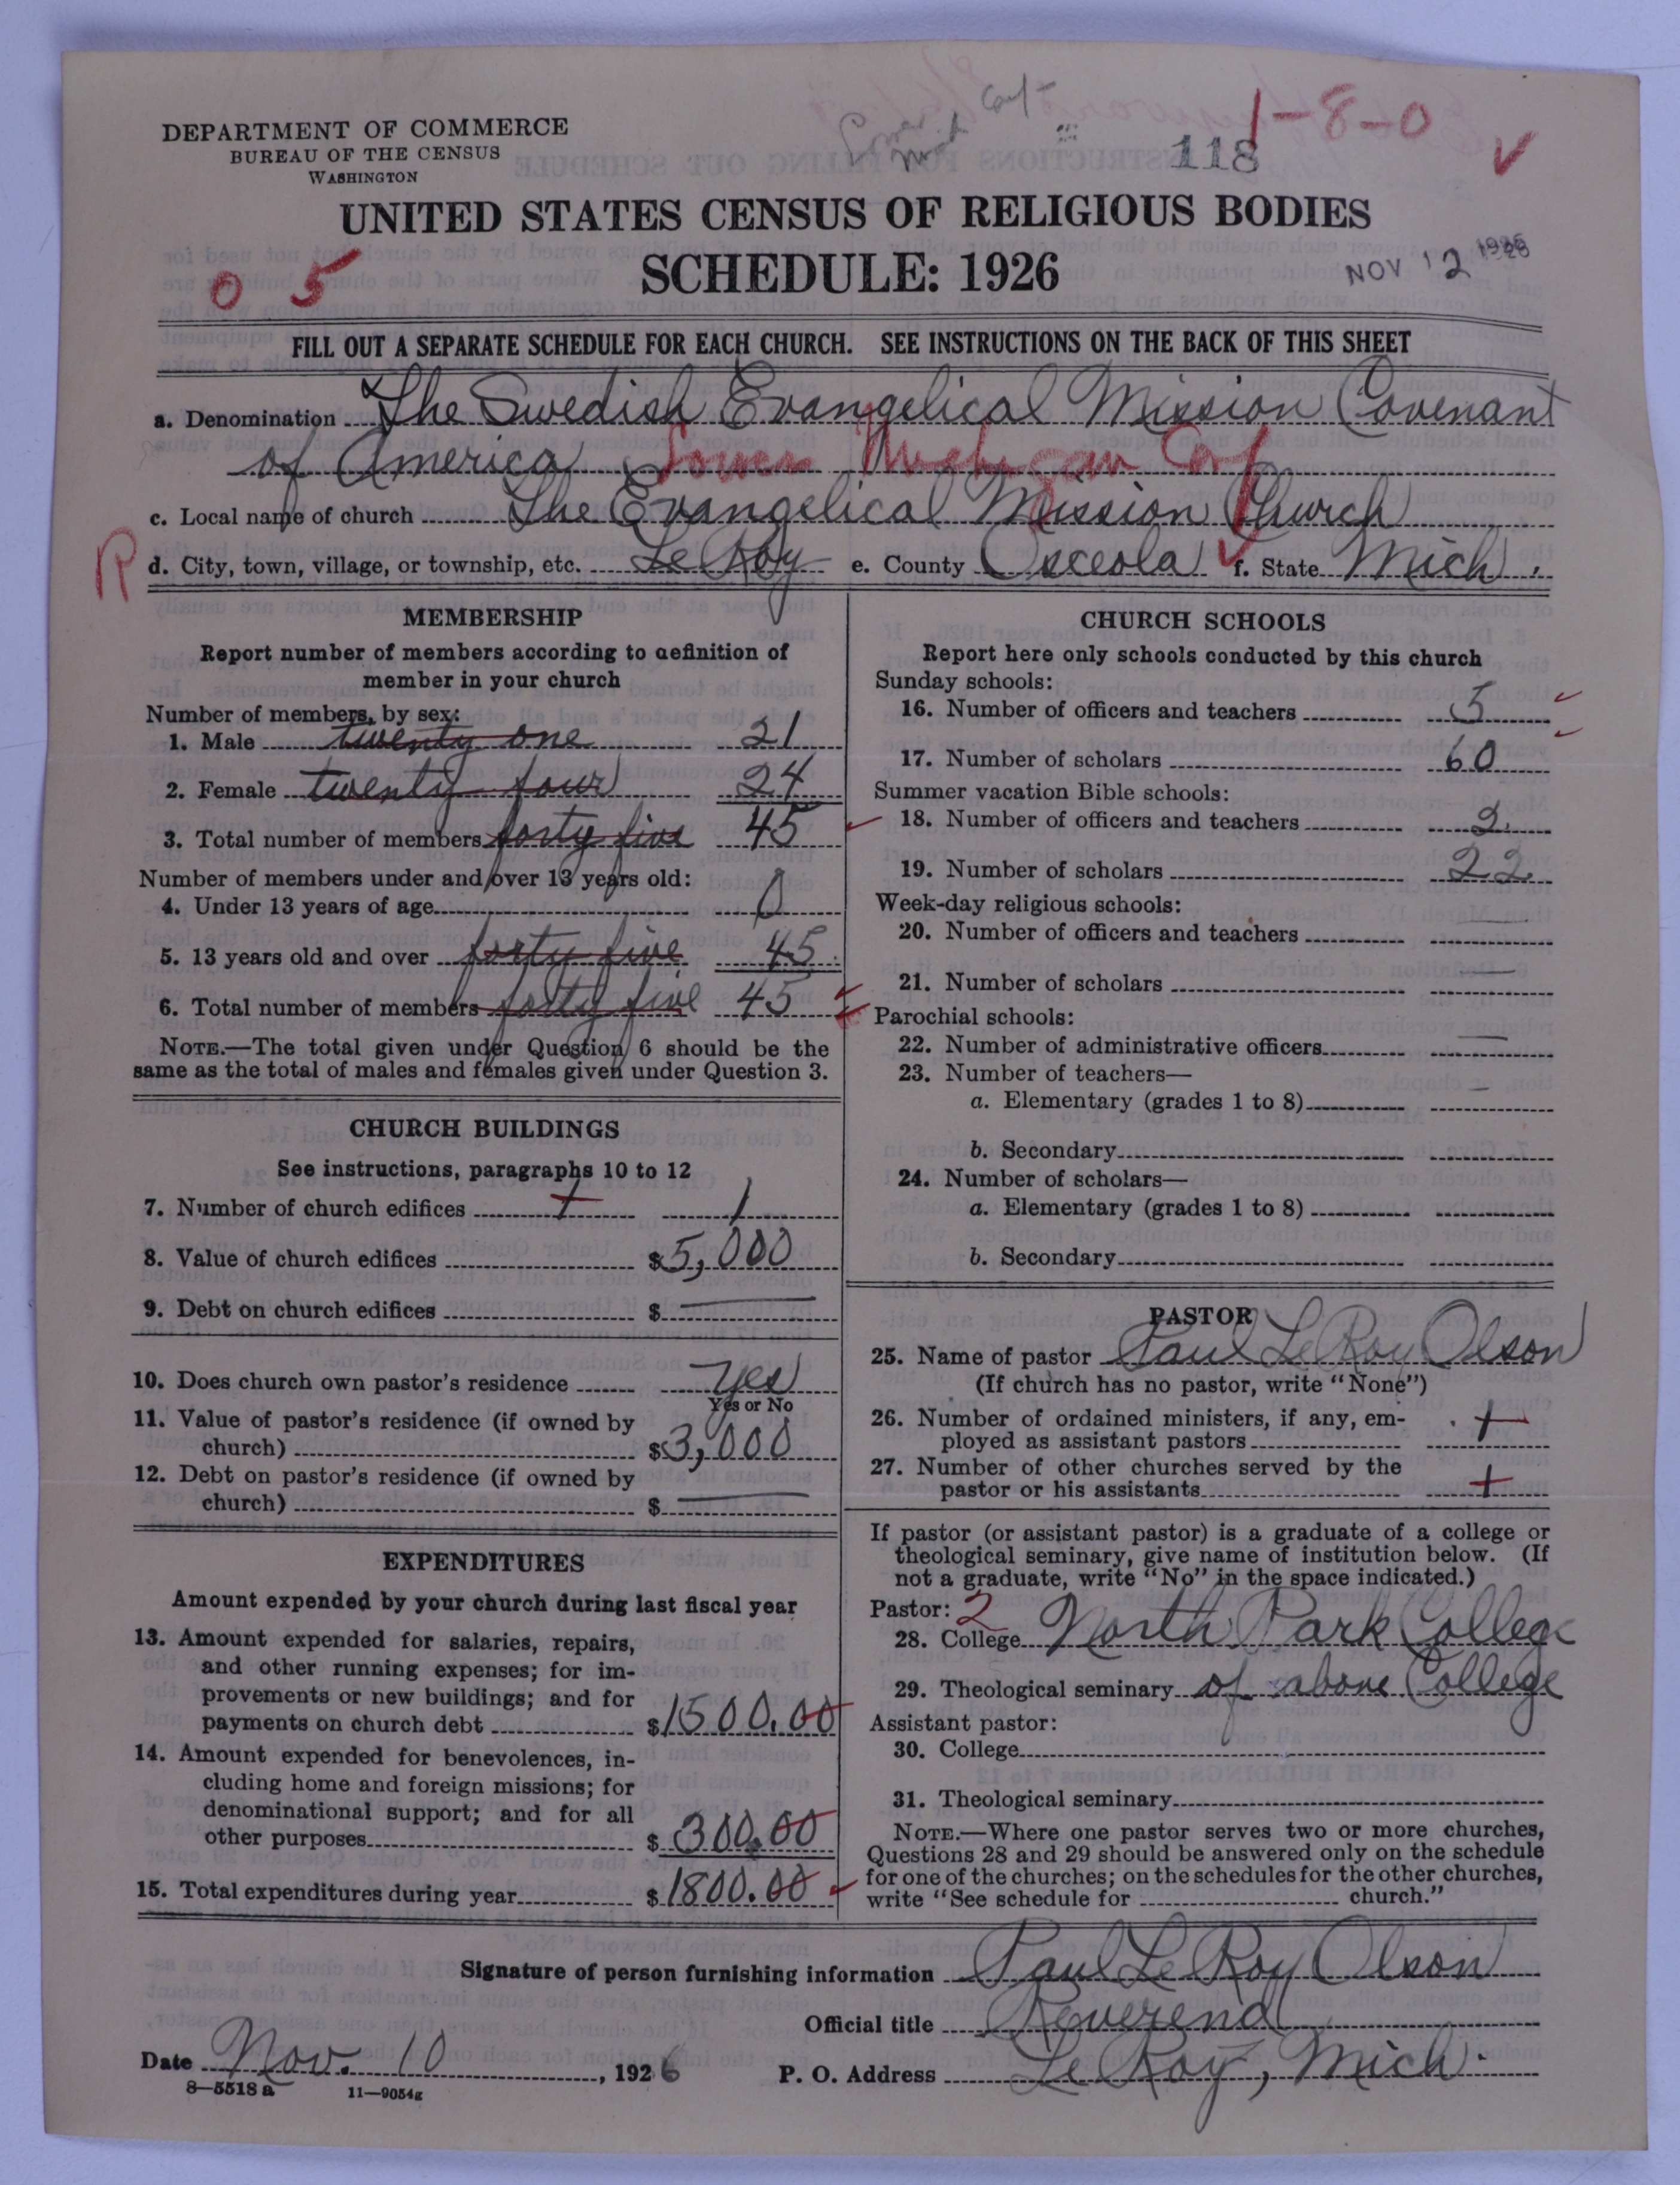 1-8-0
DEPARTMENT OF COMMERCE
BUREAU OF THE CENSUS
WASHINGTON
118
UNITED STATES CENSUS OF RELIGIOUS BODIES
SCHEDULE: 1926
NOV 12 1926
0 5
FILL OUT A SEPARATE SCHEDULE FOR EACH CHURCH. SEE INSTRUCTIONS ON THE BACK OF THIS SHEET
a. Denomination The Swedish Evangelical Mission Covenant
of America Lower Michigan Conf
c. Local name of church The Evangelical Mission Church
R
d. City, town, village, or township, etc. Le Roy e. County Osceola f. State Mich.
MEMBERSHIP
Report number of members according to definition of
member in your church
Number of members, by sex:
1. Male twenty one 21
2. Female twenty four 24
3. Total number of members forty five 45
Number of members under and over 13 years old:
4. Under 13 years of age 0
5. 13 years old and over forty five 45
6. Total number of members forty five 45
NOTE.—The total given under Question 6 should be the
same as the total of males and females given under Question 3.
CHURCH BUILDINGS
See instructions, paragraphs 10 to 12
7. Number of church edifices 1 1
8. Value of church edifices $5,000
9. Debt on church edifices $ —
10. Does church own pastor's residence yes
Yes or No
11. Value of pastor's residence (if owned by
church) $3,000
12. Debt on pastor's residence (if owned by
church) $ —
EXPENDITURES
Amount expended by your church during last fiscal year
13. Amount expended for salaries, repairs,
and other running expenses; for im-
provements or new buildings; and for
payments on church debt $1500.00
14. Amount expended for benevolences, in-
cluding home and foreign missions; for
denominational support; and for all
other purposes $300.00
15. Total expenditures during year $1800.00
CHURCH SCHOOLS
Report here only schools conducted by this church
Sunday schools:
16. Number of officers and teachers 5
17. Number of scholars 60
Summer vacation Bible schools:
18. Number of officers and teachers 2
19. Number of scholars 22
Week-day religious schools:
20. Number of officers and teachers —
21. Number of scholars —
Parochial schools:
22. Number of administrative officers —
23. Number of teachers—
a. Elementary (grades 1 to 8) —
b. Secondary
24. Number of scholars—
a. Elementary (grades 1 to 8)
b. Secondary
PASTOR
25. Name of pastor Paul LeRoy Olson
(If church has no pastor, write "None")
26. Number of ordained ministers, if any, em-
ployed as assistant pastors 1
27. Number of other churches served by the
pastor or his assistants 1
If pastor (or assistant pastor) is a graduate of a college or
theological seminary, give name of institution below. (If
not a graduate, write "No" in the space indicated.)
Pastor: 2
28. College North Park College
29. Theological seminary of above College
Assistant pastor:
30. College
31. Theological seminary
NOTE.—Where one pastor serves two or more churches,
Questions 28 and 29 should be answered only on the schedule
for one of the churches; on the schedules for the other churches,
write "See schedule for church."
Signature of person furnishing information Paul Le Roy Olson
Official title Reverend
Date Nov. 10, 1926 P. O. Address Le Roy, Mich.
8—5518 a 11—9054g